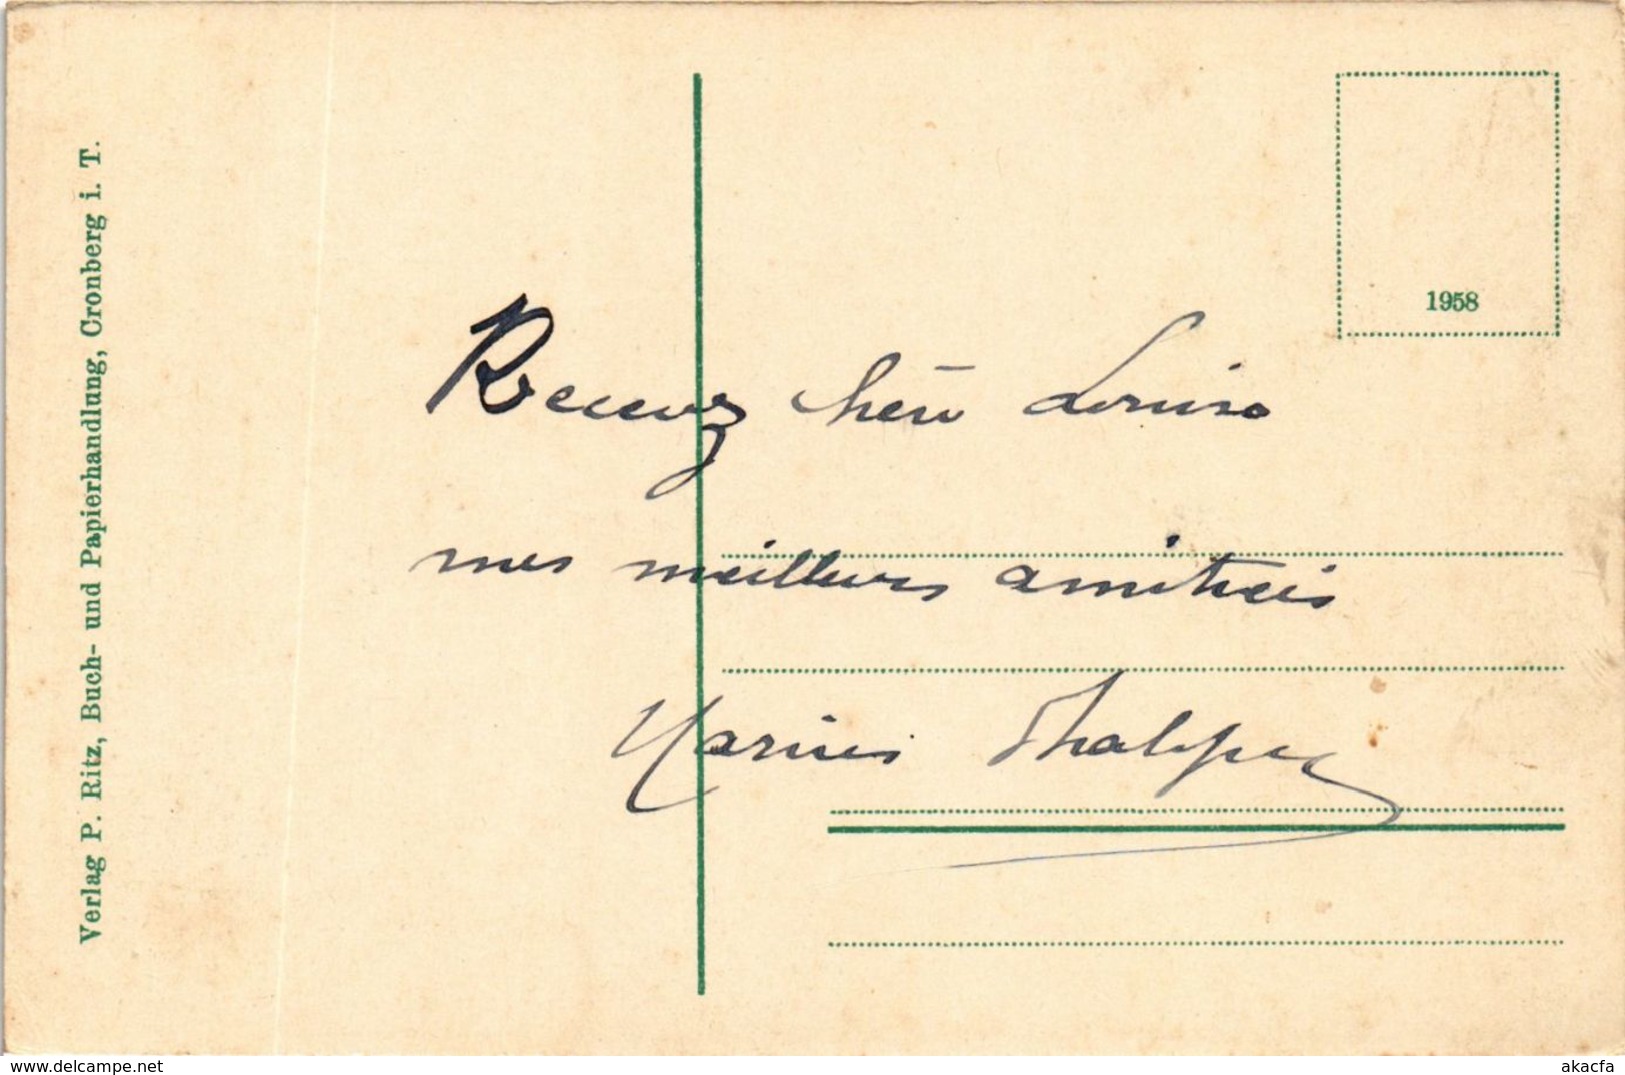 Verlag P. Ritz, Buch- und Papierhandlung, Cronberg i. T.
1958
Recevez chère Louise
mes meilleurs amitieis
Marius
delcampe.net
akacfa